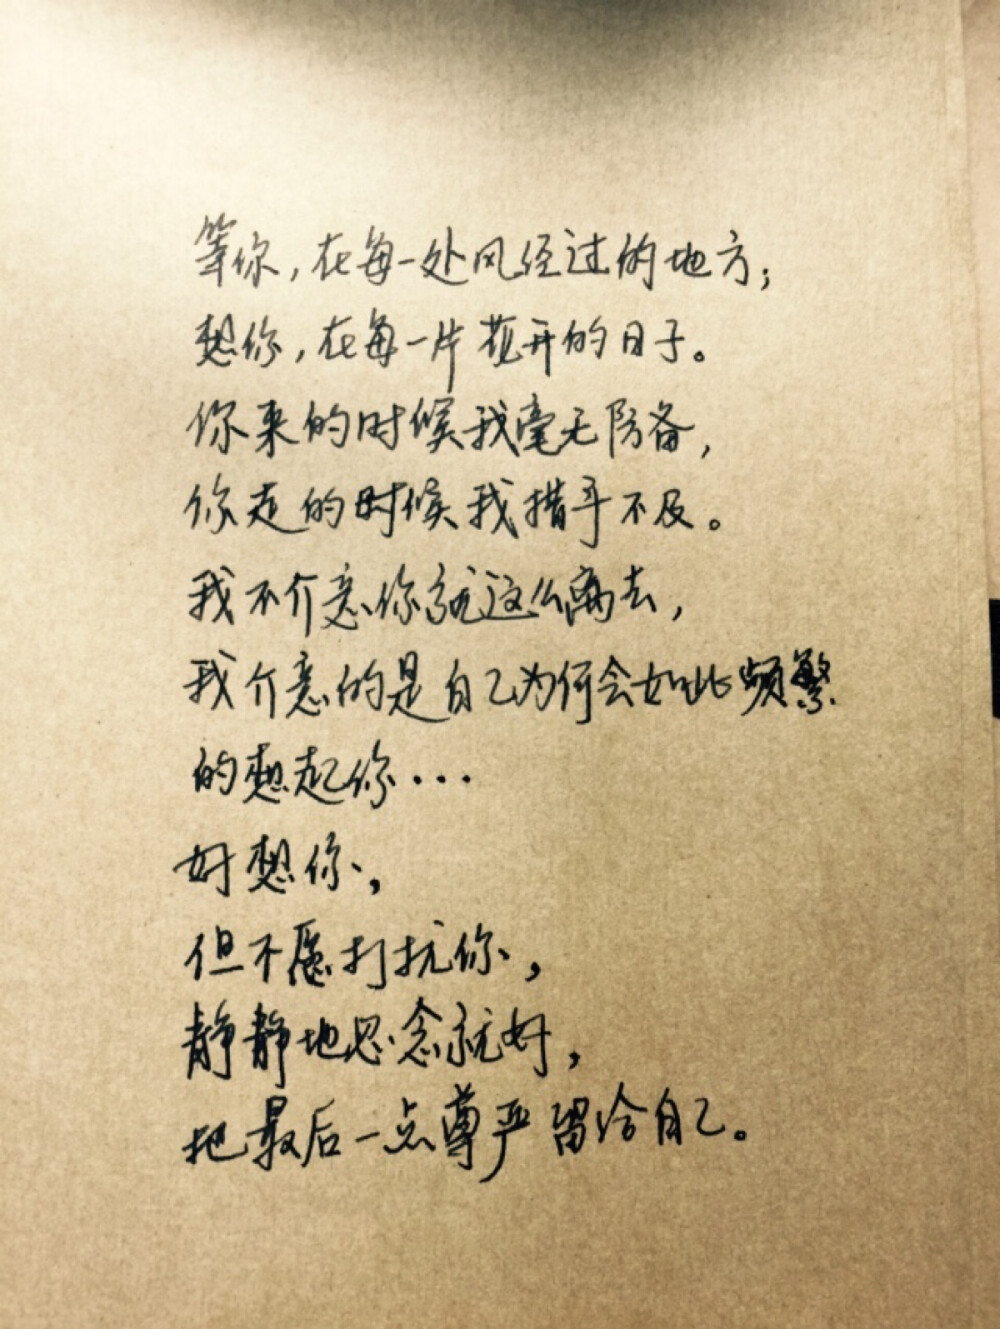 等你，在每一处风经过的地方；
想你，在每一片花开的日子。
你来的时候我毫无防备，
你走的时候我措手不及。
我不介意你就这么离去，
我介意的是自己为何会如此频繁
的想起你···
好想你，
但不愿打扰你，
静静地思念就好，
把最后一点尊严留给自己。